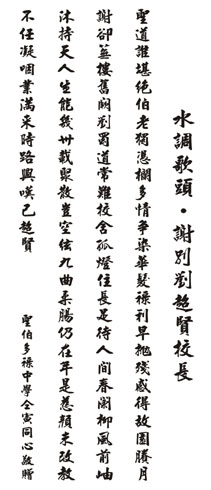 水調歌頭・謝別劉超賢校長
聖道誰堪絕伯老獨憑欄多情爭染華髮祿利早拋殘感得故園賸月
謝卻蕪樓舊閣劉蜀道常難校舍孤燈住長是待人間春闌柳風前岫
沐持天人生能幾卅載聚散豈空弦九曲柔腸仍在年是慈顏未改教
不任凝咽業滿采時路興嘆已超賢
聖伯多祿中學仝寅同心敬贈